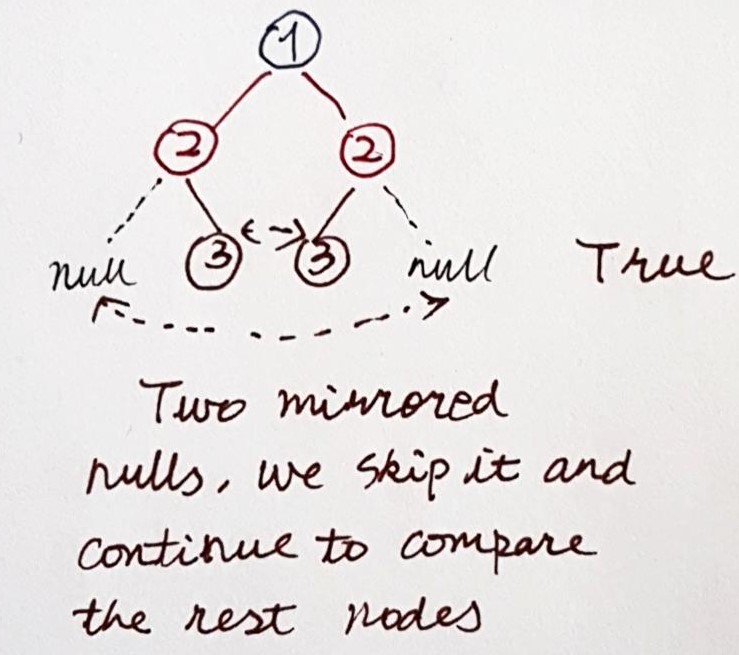 1
2 2
null 3 3 null True
Two mirrored
nulls, we skip it and
continue to compare
the rest nodes